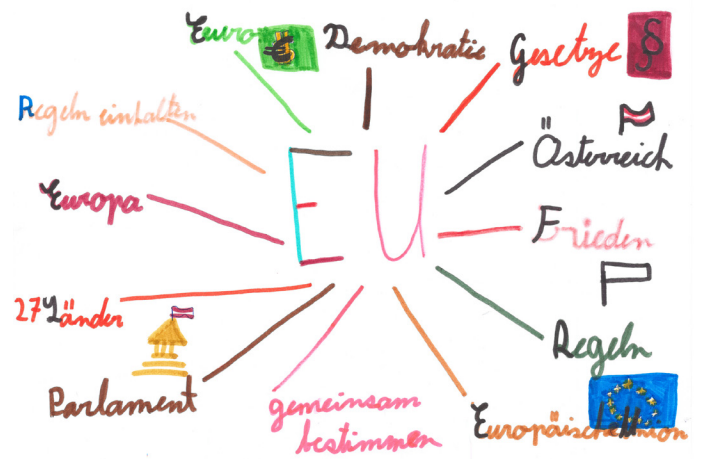 Euro €
Demokratie
Gesetze §
Regeln einhalten
Österreich
Europa
EU
Frieden
27 Länder
Regeln
Parlament
gemeinsam
bestimmen
Europäische Union